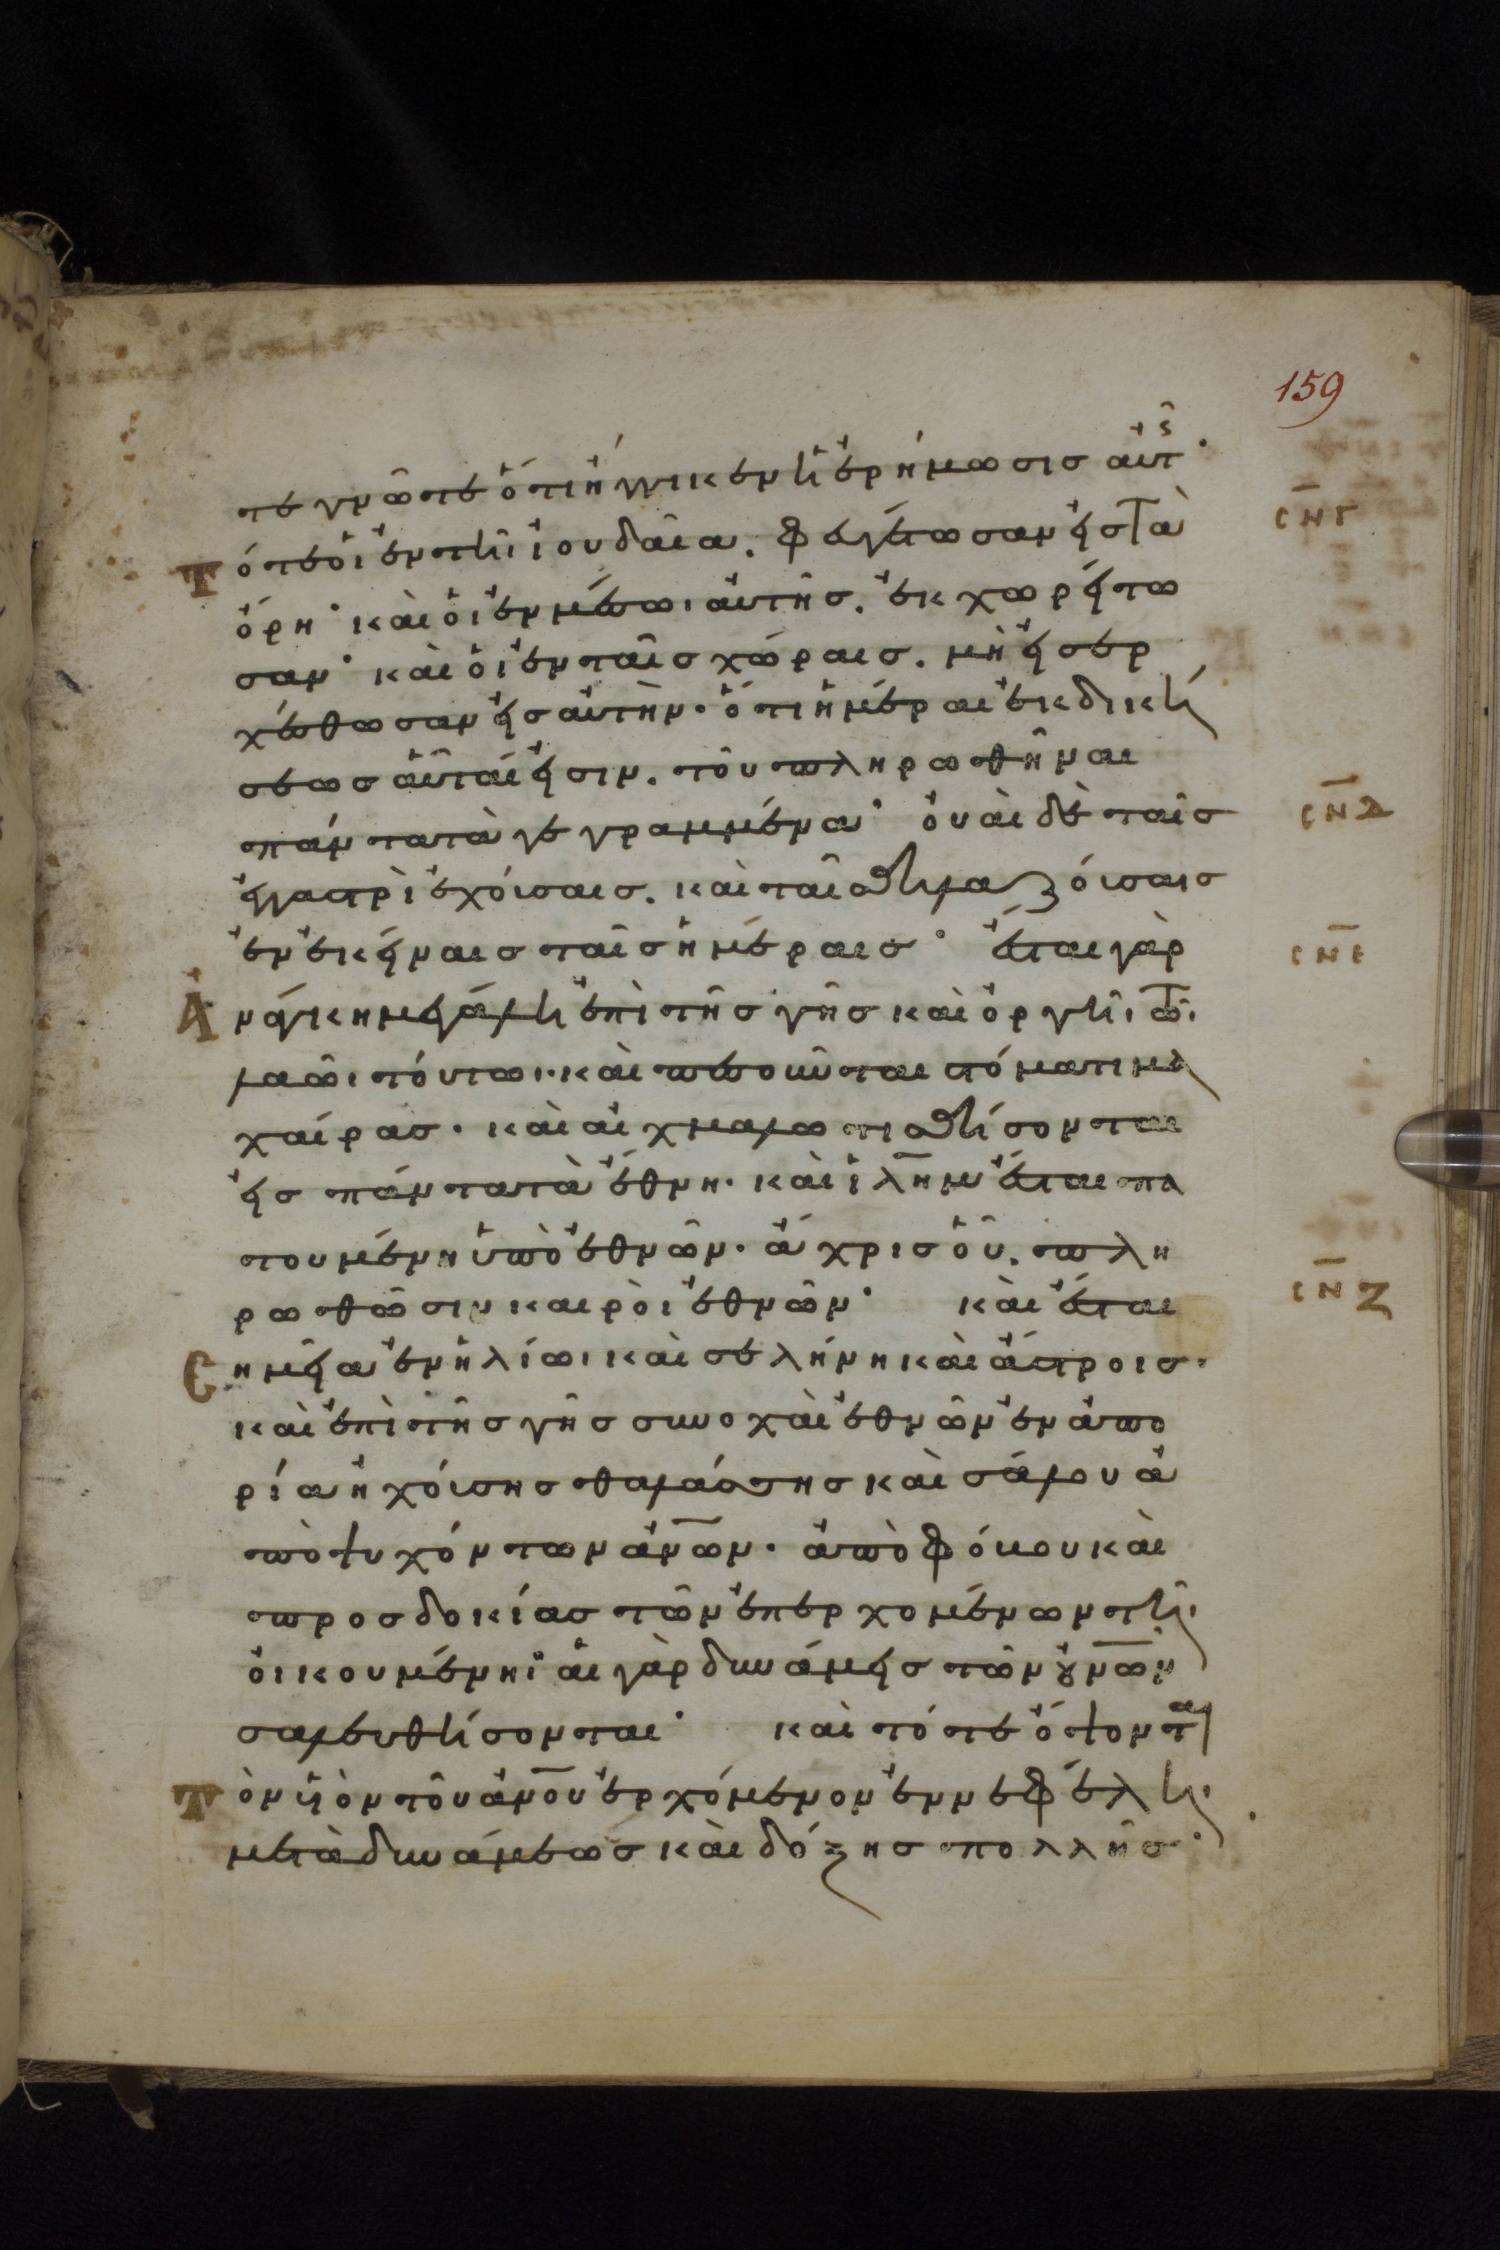 159
τε γνῶτε ὅτι ἤγγικεν ἡ ἐρήμωσις αὐτῆς·
σνγ
Τότε οἱ ἐν τῆ ἰουδαῖα. φευγέτωσαν εἰς τὰ
ὄρη· καὶ οἱ ἐν μέσωι αὐτῆς. ἐκχωρείτω
σαν· καὶ οἱ ἐν ταῖς χώραις. μὴ εἰσερ
χέσθωσαν εἰς αὐτὴν· ὅτι ἡμέραι ἐκδική
σεως αὗται εἰσιν. τοῦ πληρωθῆναι
πάντα τὰ γεγραμμένα· οὐαὶ δὲ ταῖς
σνδ
ἐν γαστρὶ ἐχούσαις. καὶ ταῖς θηλαζούσαις
ἐν ἐκείναις ταῖς ἡμέραις· ἔσται γὰρ
σνε
Ἀνάγκη μεγάλη ἐπὶ τῆς γῆς καὶ ὀργὴ τῶι
λαῶι τούτωι· καὶ πεσοῦνται στόματι μα
χαίρας· καὶ αἰχμαλωτισθήσονται
εἰς πάντα τὰ ἔθνη· καὶ ἰλῆμ ἔσται πα
τουμένη ὑπὸ ἐθνῶν· ἄχρις οὗ. πλη
ρωθῶσιν καιροὶ ἐθνῶν· καὶ ἔσται
σνζ
Σημεῖα ἐν ἡλίωι καὶ σελήνη καὶ ἄστροις·
καὶ ἐπὶ τῆς γῆς συνοχαὶ ἐθνῶν ἐν ἀπο
ρία ἠχούσης θαλάσσης καὶ σάλου ἀ
ποψυχόντων ἀνῶν· ἀπὸ φόβου καὶ
προσδοκίας τῶν ἐπερχομένων τῆι
οἰκουμένηι αἱ γὰρ δυνάμεις τῶν οὐνῶν
σαλευθήσονται· καὶ τότε ὄψονται
Τὸν υἱὸν τοῦ ἀνοῦ ἐρχόμενον ἐν νεφέλη·
μετὰ δυνάμεως καὶ δόξης πολλῆς·